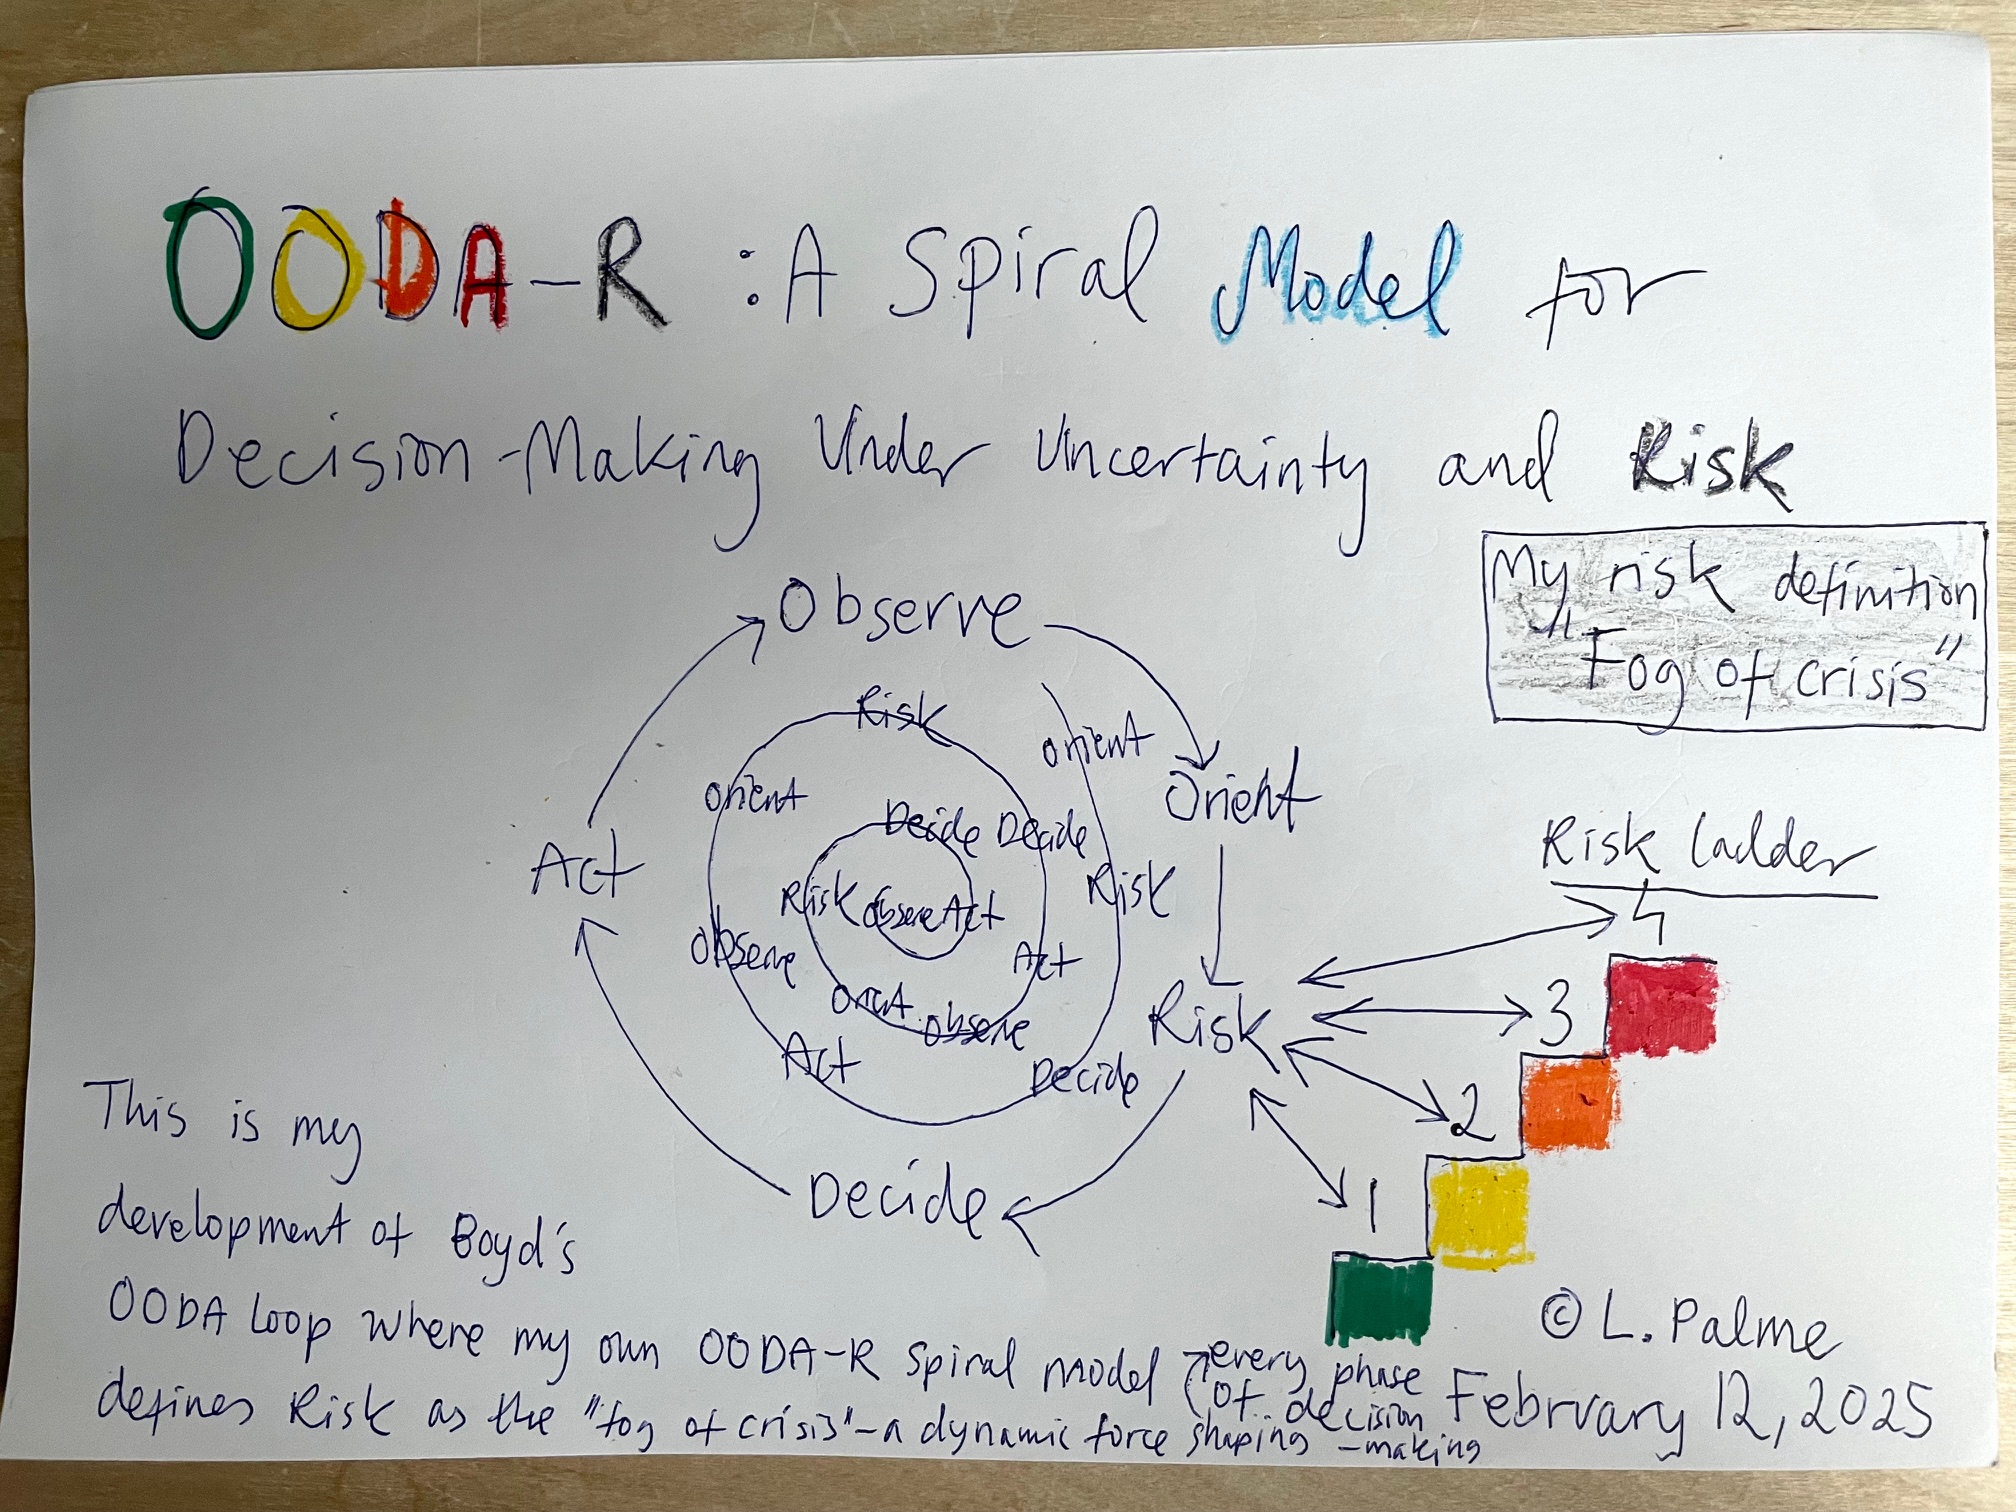 OODA-R : A Spiral Model for
Decision-Making Under Uncertainty and Risk
My risk definition
"Fog of crisis"
Observe
Risk
orient
Orient
orient
Decide Decide
Act
Risk
Risk Observe Act
Risk ladder
4
Observe
Act
3
Orient
observe
Risk
Act
Decide
2
Decide
1
This is my
development of Boyd's
OODA Loop where my own OODA-R Spiral Model
defines Risk as the "fog of crisis" - a dynamic force shaping
every phase
of decision
-making
© L. Palme
February 12, 2025